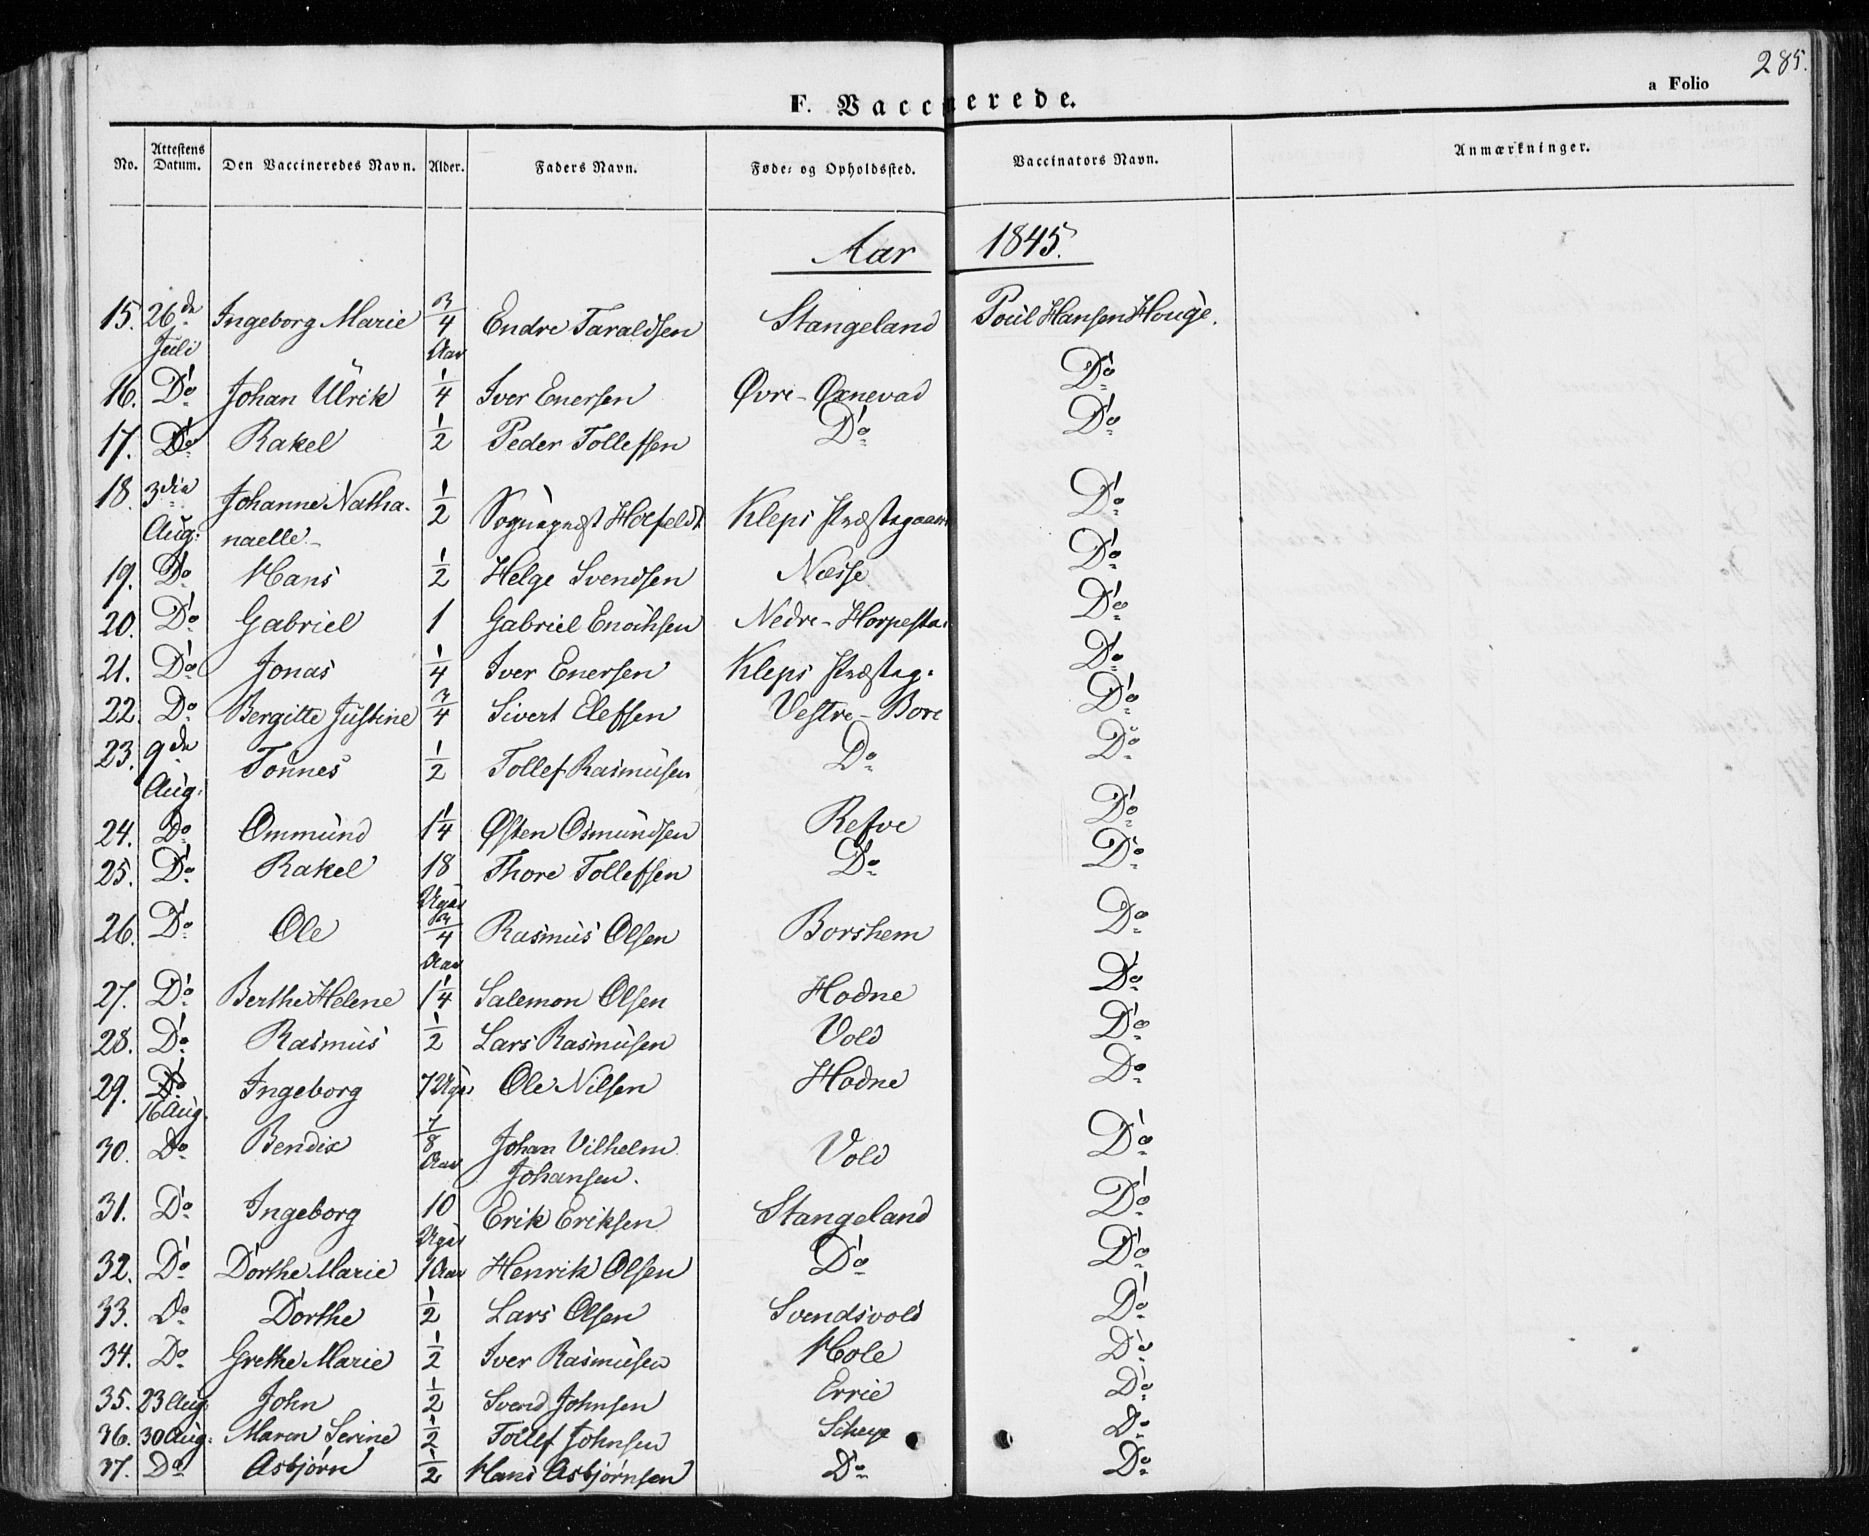 285.
a Folio
F. Vaccinerede.
No. Attestens Datum. Den Vaccineredes Navn. Alder. Faders Navn. Føde- og Opholdssted. Vaccinators Navn. Anmærkninger.
Aar 1845.
15. 26de Juli Ingeborg Marie 3/4 Aar Endre Taraldsen Stangeland Poul Hansen Houge.
16. Do Johan Ulrik 1/4 Iver Enersen Øvre-Øxnevad Do
17. Do Rakel 1/2 Peder Tollefsen Do Do
18. 3die Aug: Johanne Natha-
naelle 1/2 Sognepræst Kleps Præstegaard Do
19. Do Hans 1/2 Helge Svendsen Næsse Do
20. Do Gabriel 1 Gabriel Enochsen Nedre-Horpesta Do
21. Do Jonas 1/4 Iver Enersen Kleps Præsteg: Do
22. Do Bergitte Justine 3/4 Sivert Elefsen Vestre-Bore Do
23. 9de Aug: Tønnes 1/2 Tollef Rasmusen Do Do
24. Do Ommund 1 1/4 Østen Osmundsen Refve Do
25. Do Rakel 18 Uger Thore Tollefsen Do Do
26. Do Ole 3/4 Aar Rasmus Olsen Borshem Do
27. Do Berthe Helene 1 1/4 Salemon Olsen Hodne Do
28. Do Rasmus 1/2 Lars Rasmusen Vold Do
29. Do Ingeborg 7 Uger Ole Nilsen Hodne Do
16 Aug.
30. Do Bendix 7/8 Aar Johan Vilhelm
Johansen. Vold Do
31. Do Ingeborg 10 Uger Erik Eriksen Stangeland Do
32. Do Dorthe Marie 1 Aar Henrik Olsen Do Do
33. Do Dorthe 1/2 Lars Olsen Svendsvold Do
34. Do Grethe Marie 1/2 Iver Rasmusen Hole Do
35. 23 Aug. John 1/2 Svend Johnsen Errie Do
36. 30 Aug: Maren Serine 1/2 Tollef Johnsen Do
37. Do Asbjørn 1/2 Hans Asbjørnsen Do Do